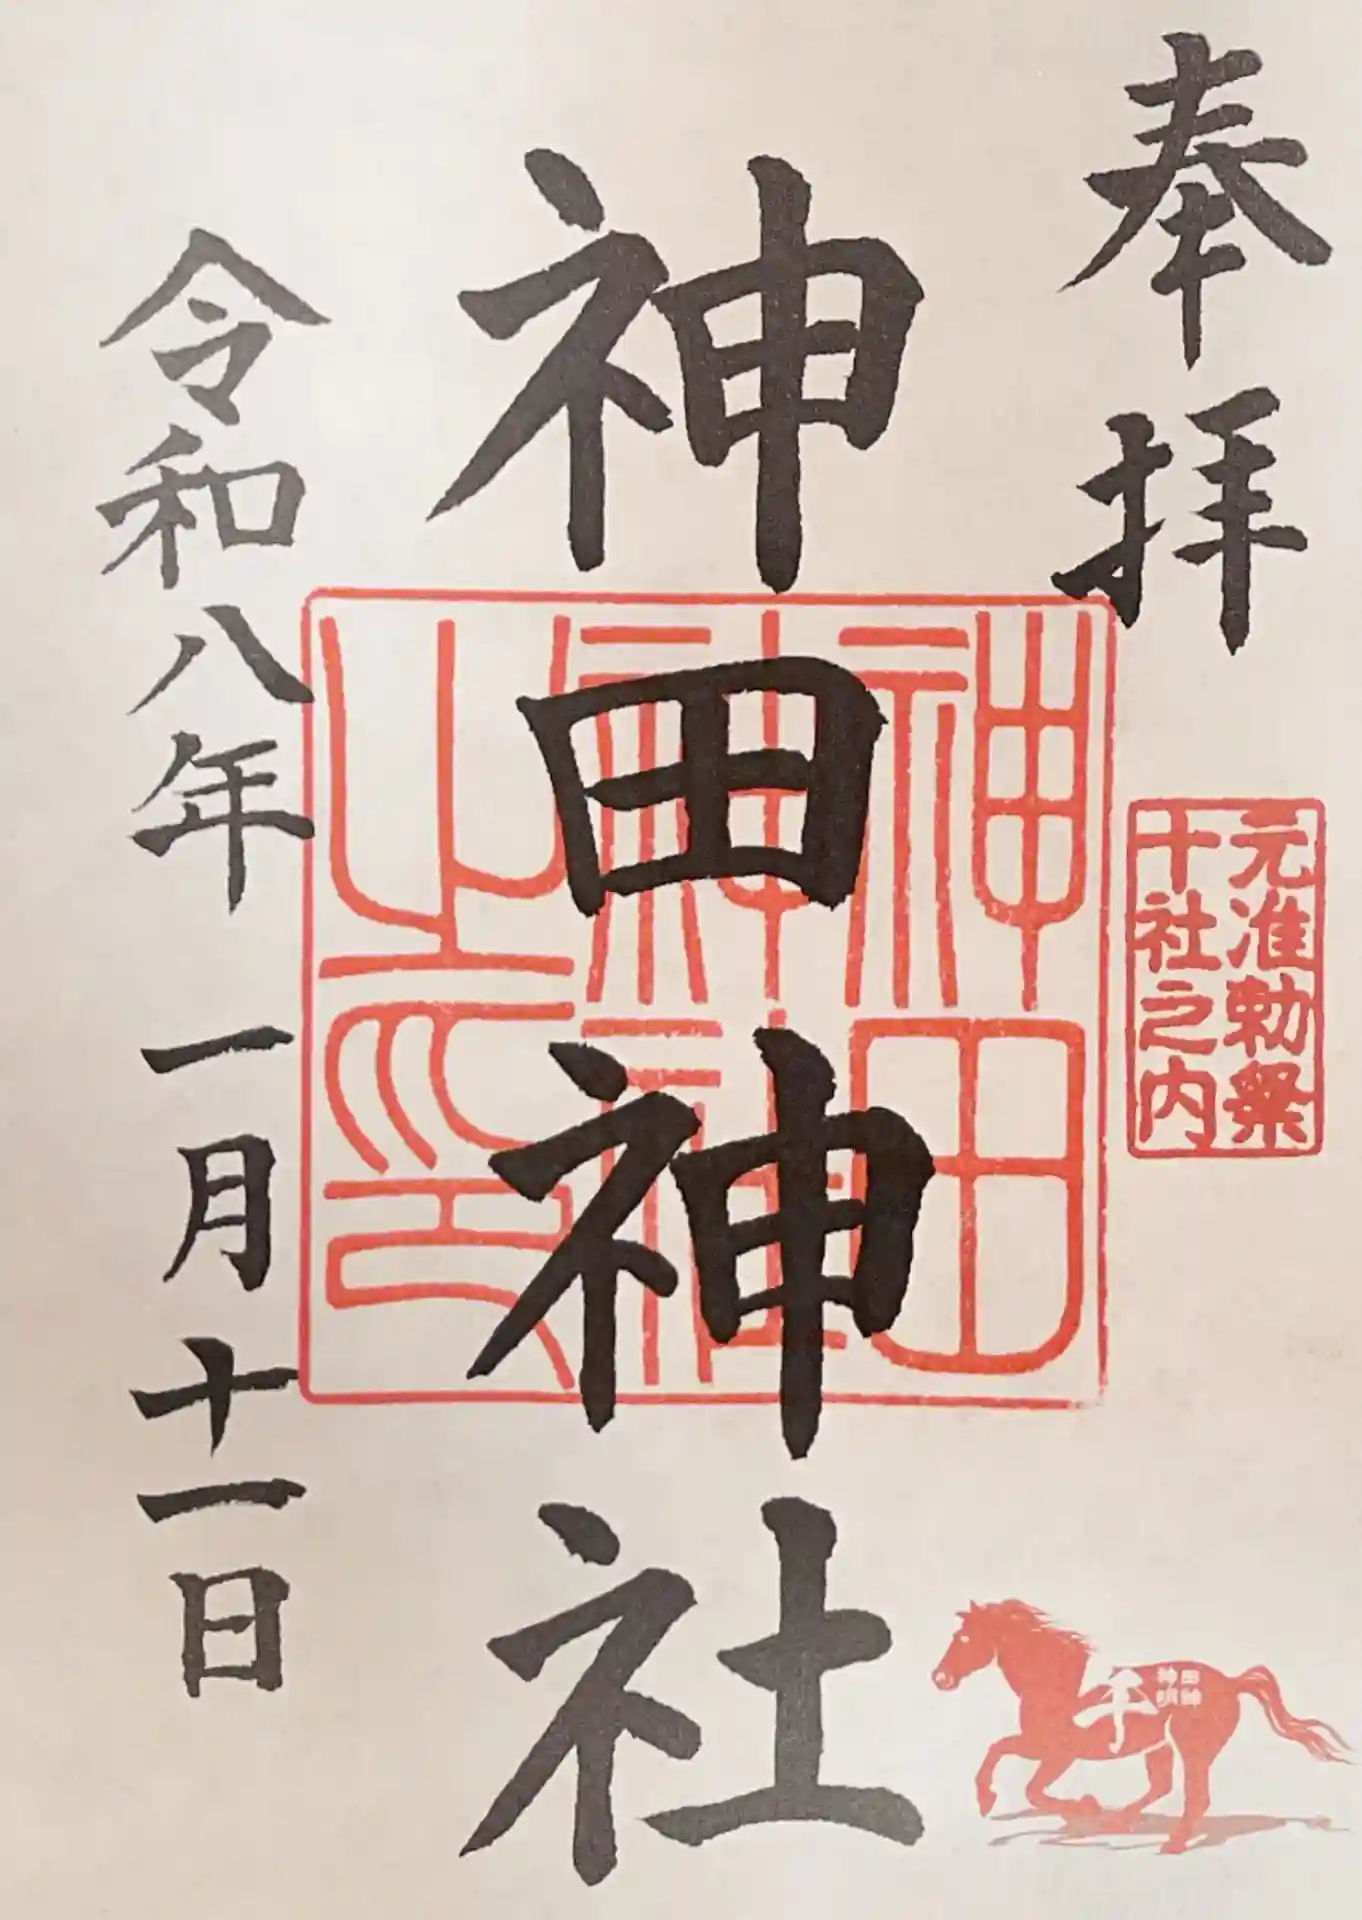 奉拝
元准勅祭
十社之内
神田神社
神田
神社
之印
令和八年一月十一日
午
田神
神明